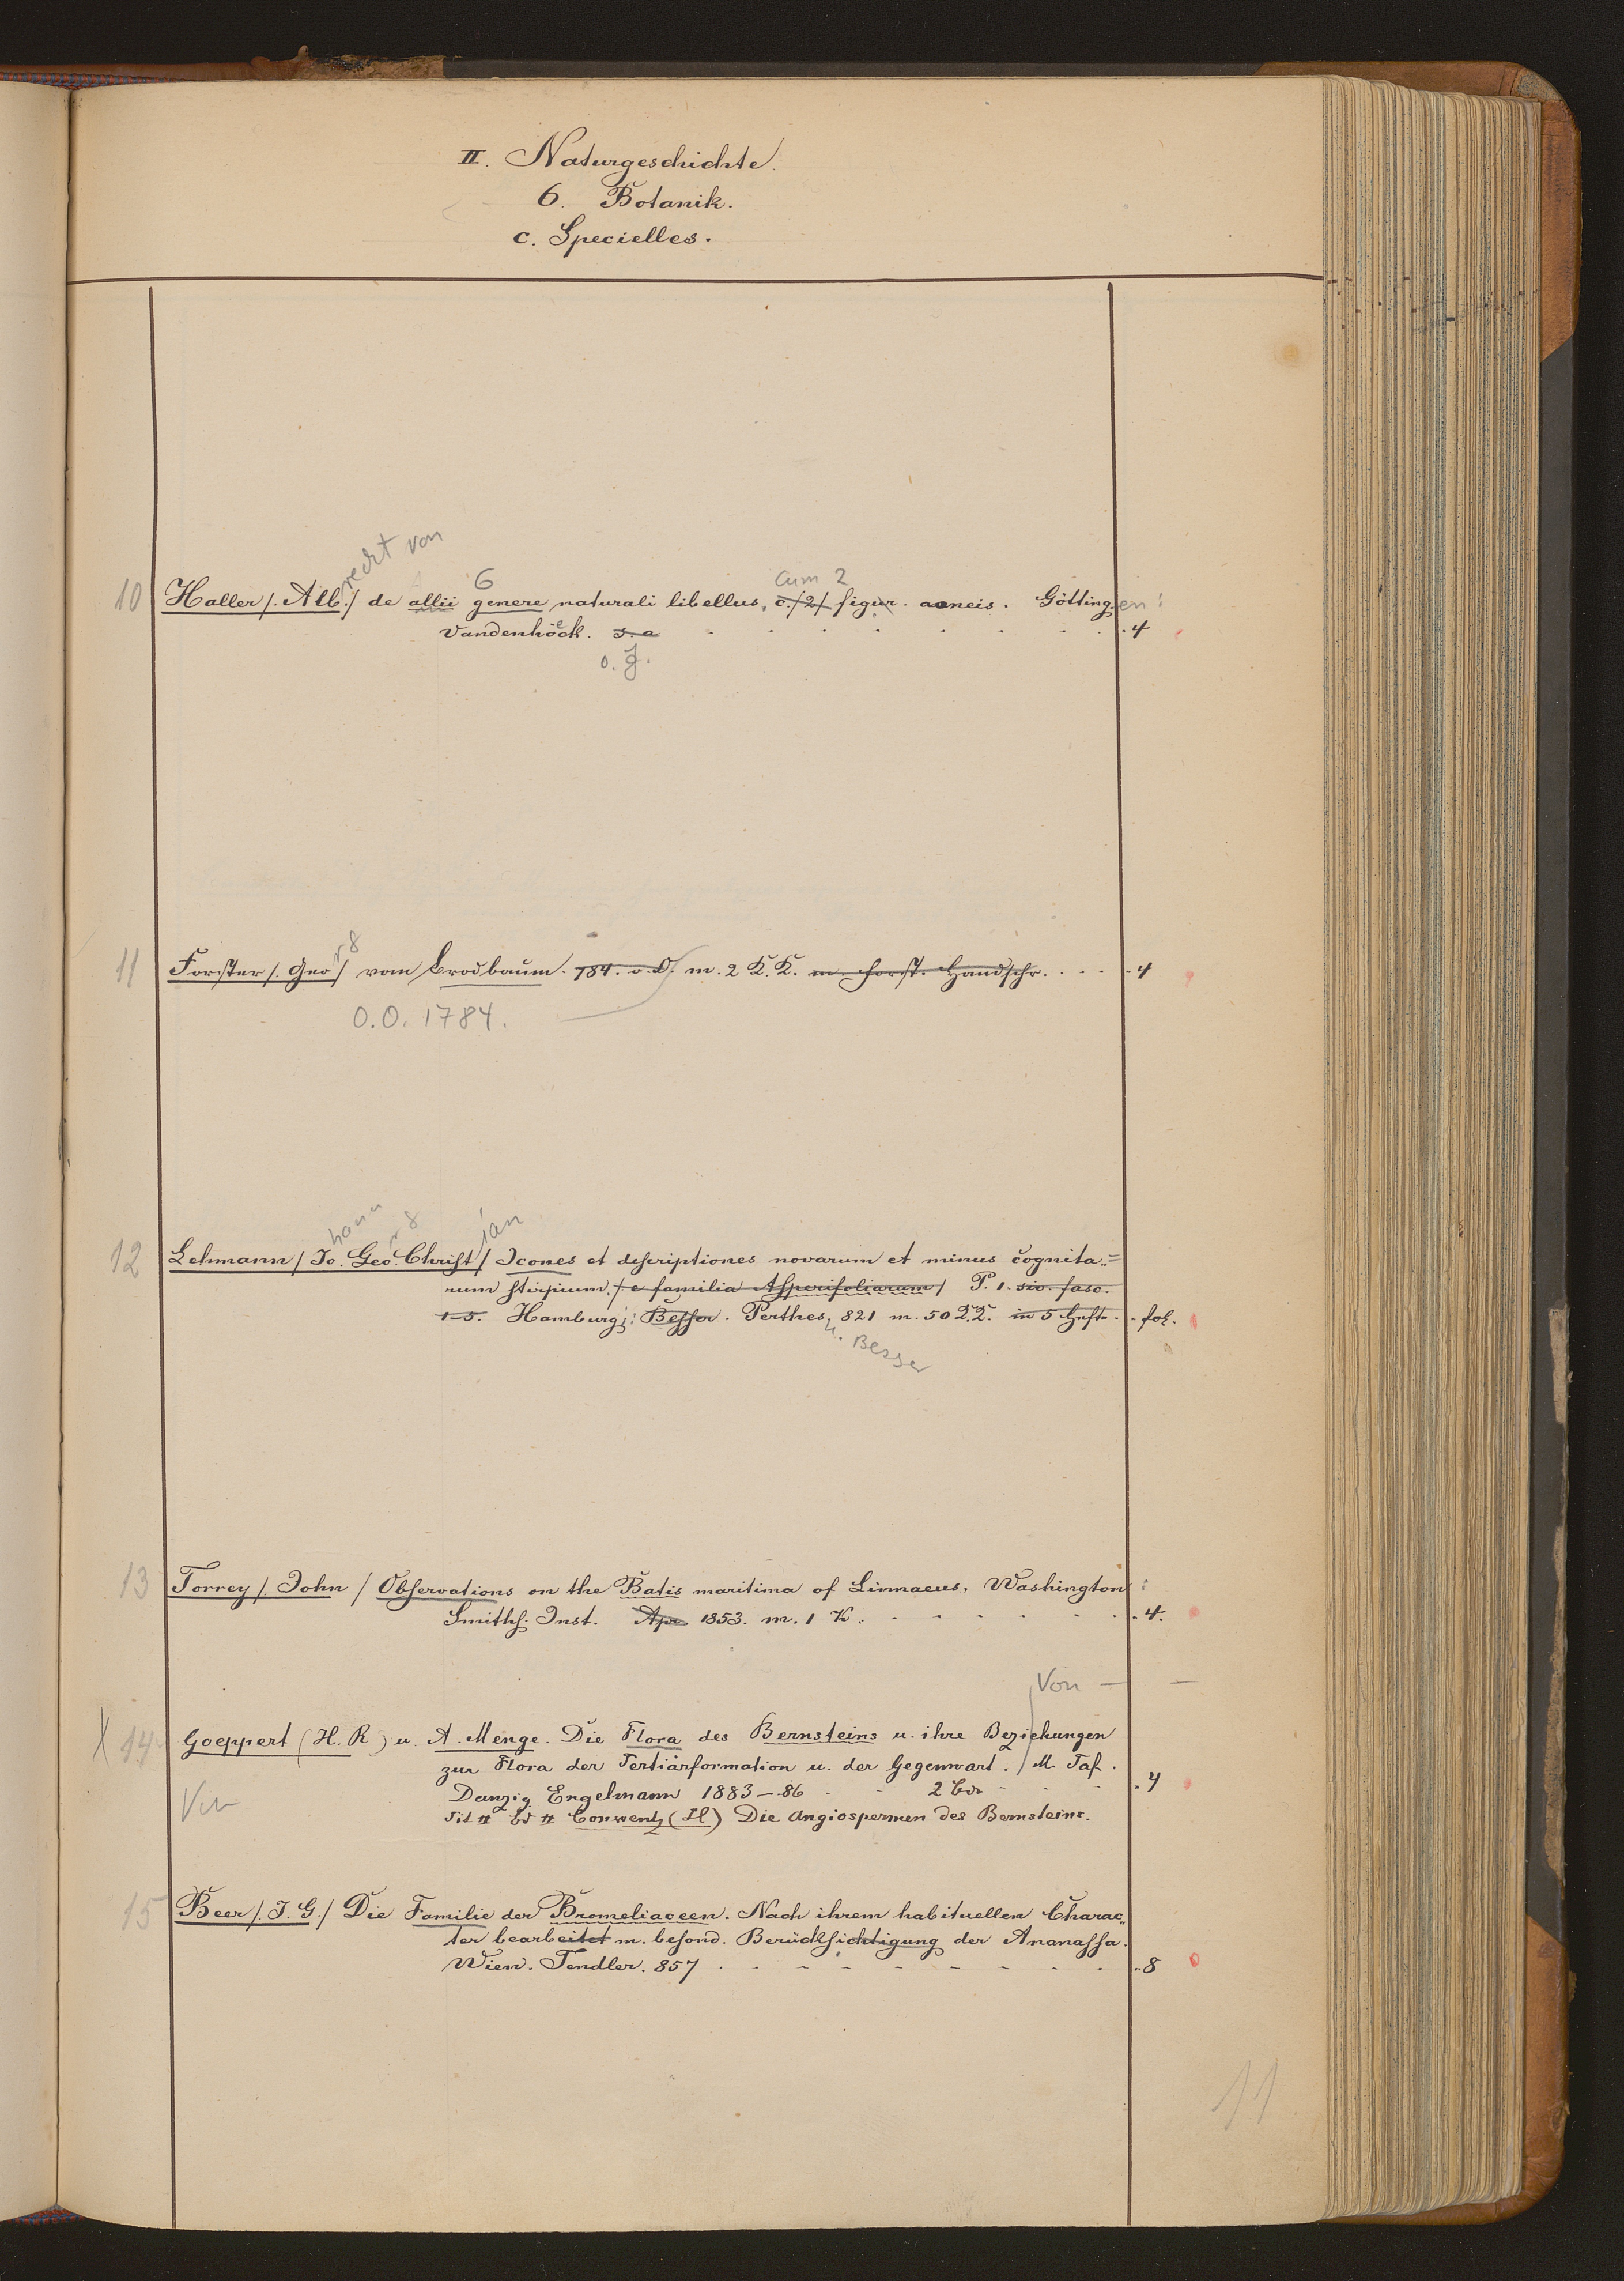 II. Naturgeschichte.
6. Botanik.
c. Specielles.
recht von
6
cum 2
10 Haller /. Alb./ de allii genere naturali libellus, c./2/ figur. aeneis. Götting en:
Vandenhöeck. s. a . . . . . . . . . 4
o. J.
rg
11 Forster /. Geo / vom Brodbaum. 784. o. O. m. 2 K. K. m. Forst. Handschr. . . . . 4
O.O. 1784.
hann rg ian
12 Lehmann / Jo. Geo. Christ / Icones et descriptiones novarum et minus cognita-
rum stirpium. / e familia Asperifoliarum / P. 1. sive fasc.
1-5. Hamburg: Besser. Perthes, 821 m. 50 T.T. in 5 Heft. . fol.
u. Besser
13 Torrey /. John / Observations on the Batis maritima of Linnaeus. Washington:
Smiths. Inst. Apr 1853. m. 1 K. . . . . . . 4.
Von — —
X 14 Goeppert (H. R) u. A. Menge. Die Flora des Bernsteins u. ihre Beziehungen
zur Flora der Tertiärformation u. der Gegenwart. / M. Taf.
Danzig Engelmann 1883-86 . . 2 Bde . . . 4
Tit II Bd II Conwentz (H) Die Angiospermen des Bernsteins.
15 Beer /. J. G./ Die Familie der Bromeliaceen. Nach ihrem habituellen Charac-
ter bearbeitet m. besond. Berücksichtigung der Ananassa.
Wien. Tendler. 857 . . . . . . . . . 8
11